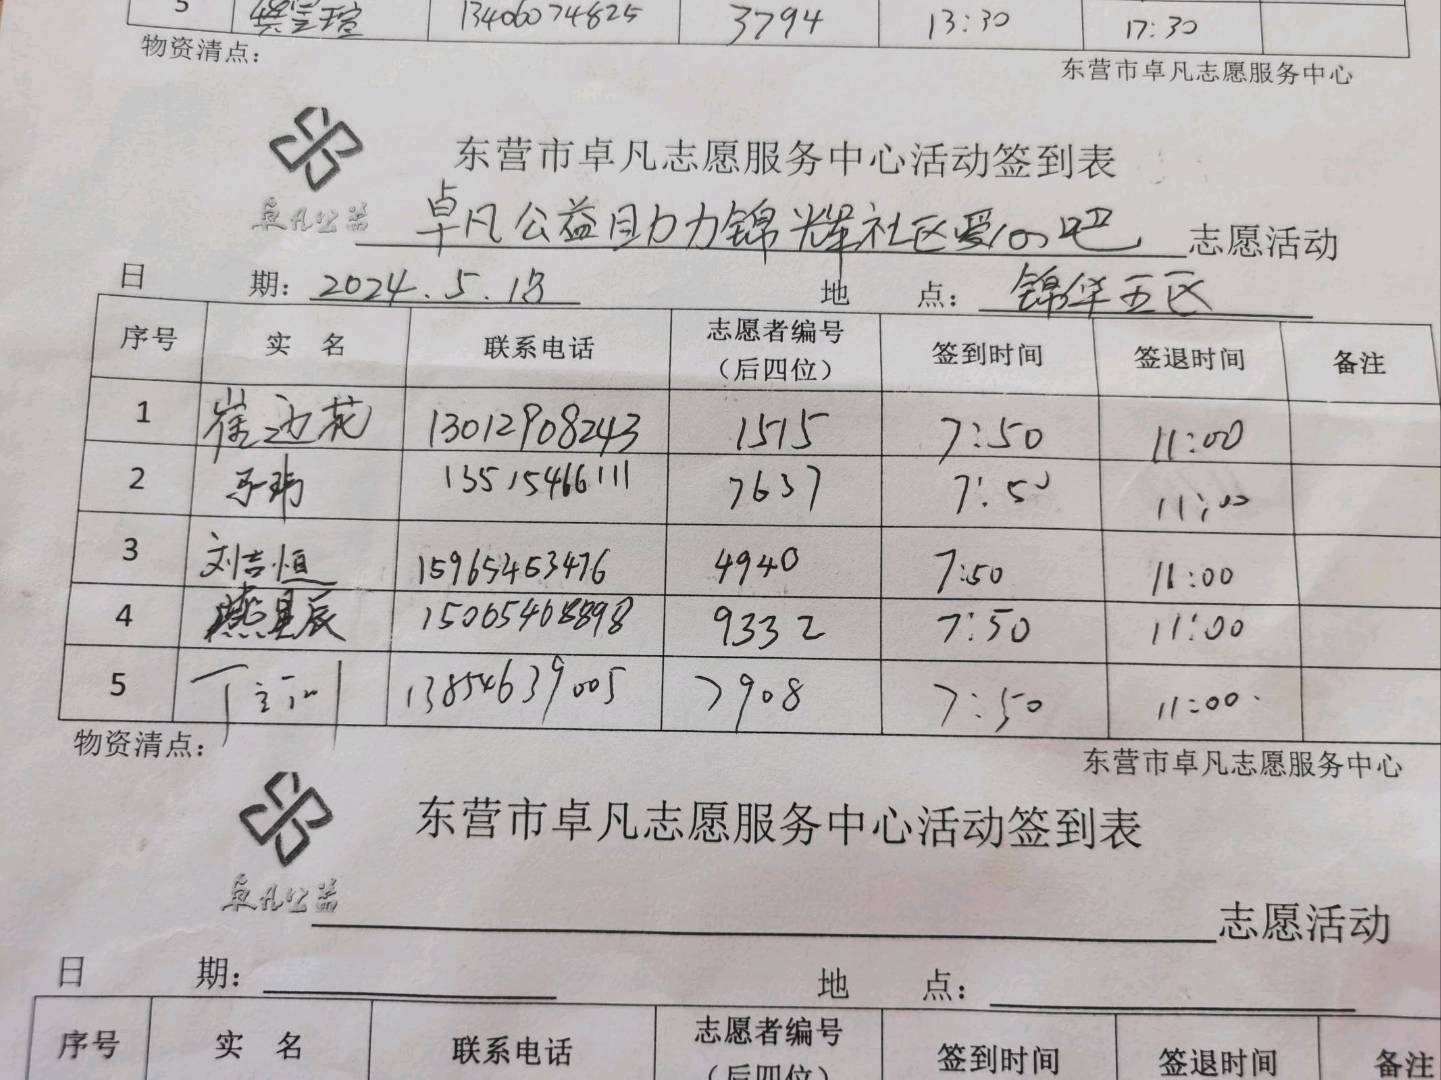 5 13406074825 3794 13:30 17:30
物资清点： 东营市卓凡志愿服务中心
卓凡公益
东营市卓凡志愿服务中心活动签到表
卓凡公益助力锦华社区爱100吧 志愿活动
日 期：2024.5.18 地 点：锦华五区
序号 实 名 联系电话 志愿者编号（后四位） 签到时间 签退时间 备注
1 13012908243 1515 7:50 11:00
2 13515466111 7637 7:50 11:00
3 刘吉恒 15965453476 4940 7:50 11:00
4 9332 7:50 11:00
5 13854639005 7908 7:50 11:00
物资清点： 东营市卓凡志愿服务中心
卓凡公益
东营市卓凡志愿服务中心活动签到表
志愿活动
日 期： 地 点：
序号 实 名 联系电话 志愿者编号（后四位） 签到时间 签退时间 备注